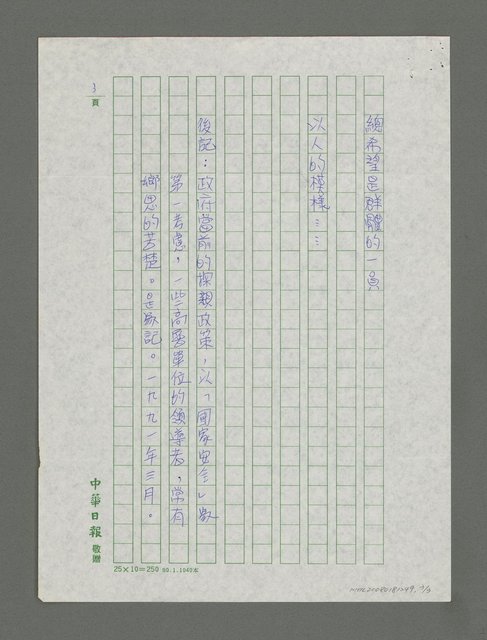 總希望是群體的一員
以人的模樣……
後記：政府當前的探親政策，以「國家安全」為
第一考慮，一些高層單位的領導者，常有
鄉思的苦楚。是為記。一九九一年三月。
3
頁
中華日報 敬贈
25×10=250 80.1.1040本